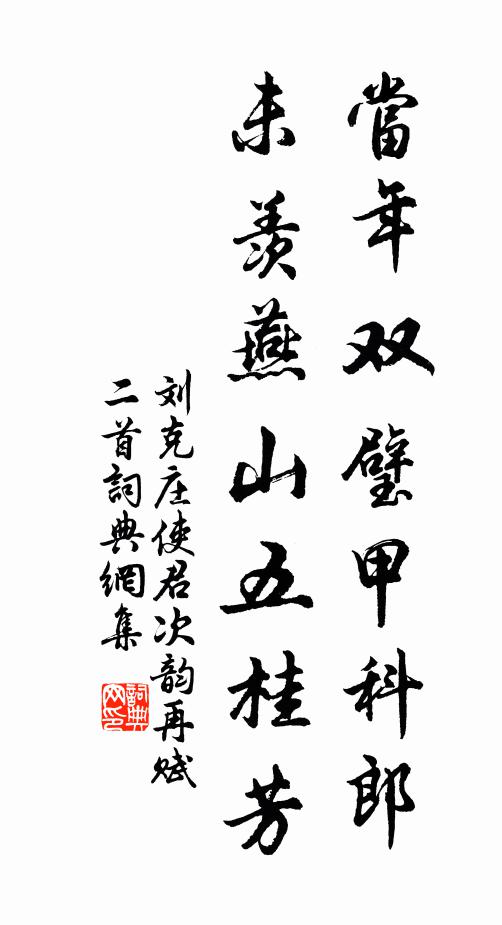 當年双璧甲科郎
未羨燕山五桂芳
刘克庄使君次韵再赋
二首詞典網集
詞典
网印